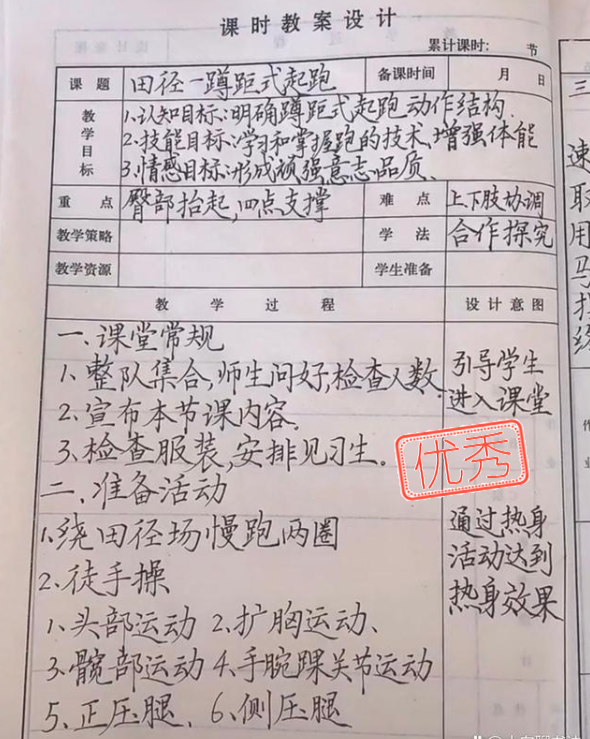 课时教案设计
累计课时: 节
课题 田径—蹲距式起跑 备课时间 月 日
教学目标 1.认知目标:明确蹲距式起跑动作结构.
2.技能目标:学习和掌握跑的技术,增强体能
3.情感目标:形成顽强意志品质.
重点 臀部抬起,四点支撑 难点 上下肢协调
教学策略 学法 合作探究
教学资源 学生准备
教学过程 设计意图
一、课堂常规
1、整队集合,师生问好,检查人数. 引导学生
2、宣布本节课内容. 进入课堂
3、检查服装,安排见习生.
优秀
二、准备活动
1、绕田径场慢跑两圈 通过热身
2、徒手操 活动达到
1、头部运动 2、扩胸运动、 热身效果
3、髋部运动 4、手腕踝关节运动
5、正压腿、6、侧压腿
三
速
取
用
马